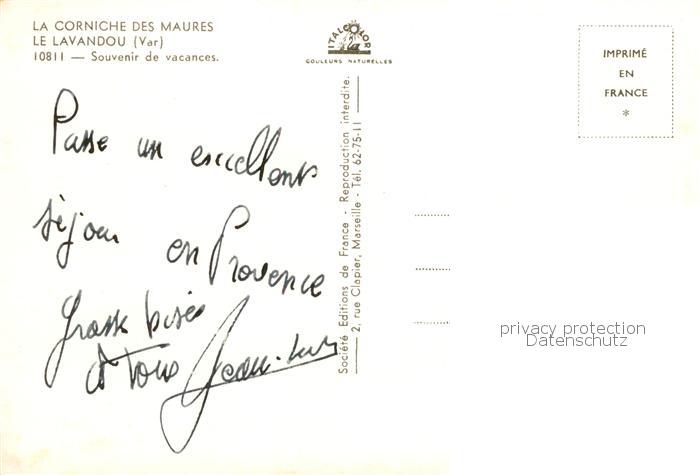 LA CORNICHE DES MAURES
LE LAVANDOU (Var)
10811 — Souvenir de vacances.
ITALCOLOR
COULEURS NATURELLES
IMPRIMÉ
EN
FRANCE
*
Passe un excellent
séjour en Provence
Grosse bises
à tous Jean-Luc
Société Editions de France - Reproduction interdite.
2, rue Clapier, Marseille - Tél. 62-75-11
privacy protection
Datenschutz